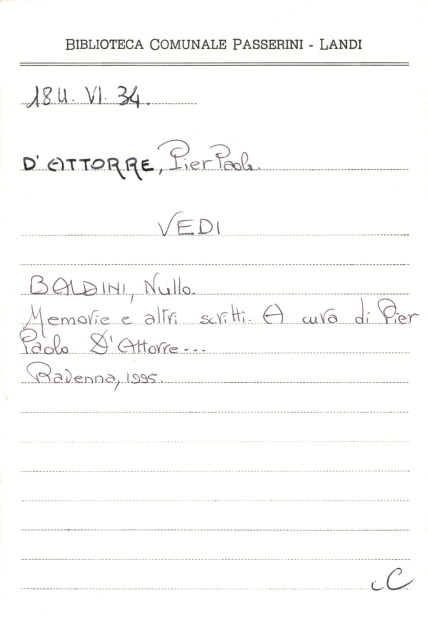 BIBLIOTECA COMUNALE PASSERINI - LANDI
18U. VI. 34.
D'ATTORRE, Pier Paolo.
VEDI
BALDINI, Nullo.
Memorie e altri scritti. A cura di Pier
Paolo D'Attorre...
Ravenna, 1995.
iC